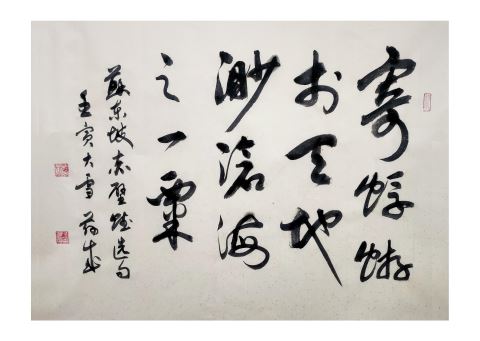 寄蜉蝣
於天地
渺滄海
之一粟
蘇東坡赤壁賦選句
壬寅大雪